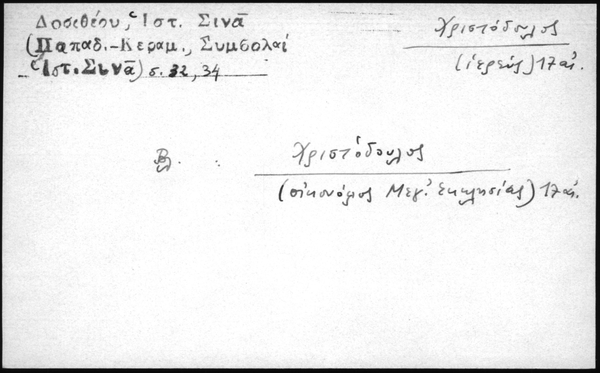 Δοσιθέου, Ἱστ. Σινᾶ
(Παπαδ.-Κεραμ., Συμβολαί
Ἱστ. Σινᾶ) σ. 32, 34
Χριστόδουλος
(ἱερεύς) 17 αἰ.
Βλ. : Χριστόδουλος
(οἰκονόμος Μεγ. Ἐκκλησίας) 17 αἰ.